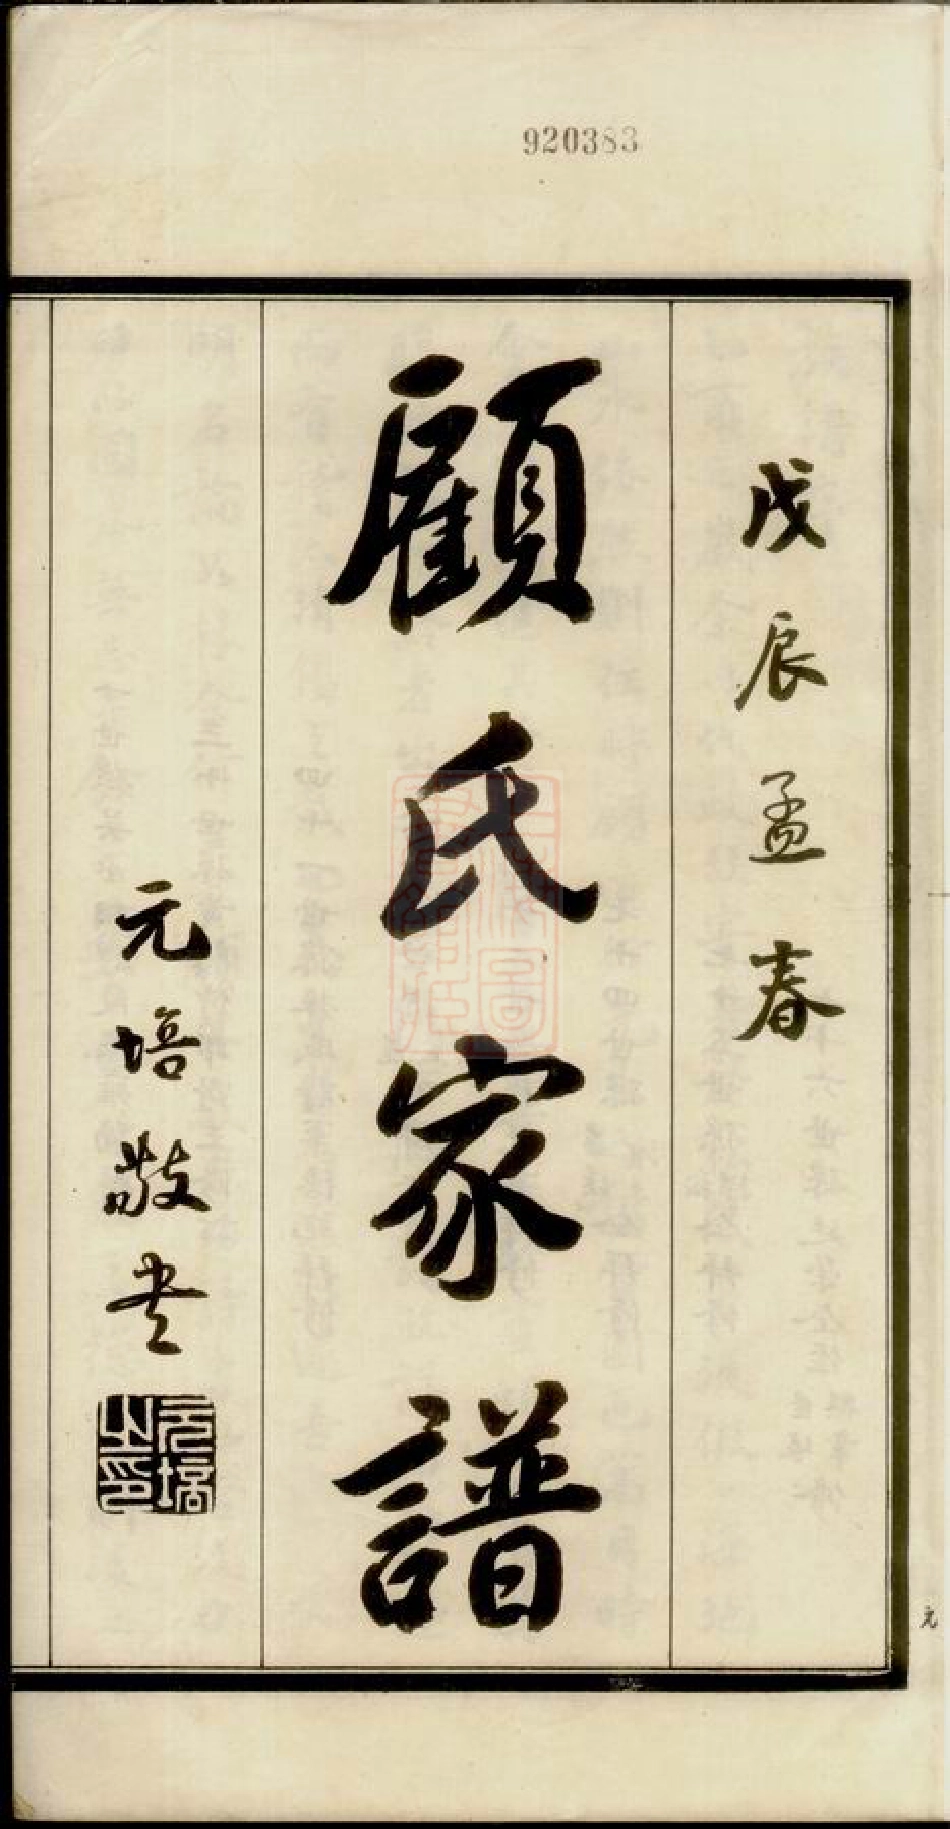 920383
戊辰孟春
顧氏家譜
元培敬书
元培之印
元